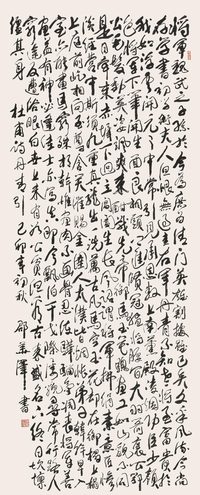 將軍魏武之子孫於今為庶為清門英雄割據雖已矣文采風流今尚
存學書初學衛夫人但恨無過王右軍丹青不知老將至富貴於
我如浮雲開元之中常引見承恩數上南熏殿凌煙功臣少顏
色將軍下筆開生面良相頭上進賢冠猛將腰間大羽箭褒公鄂
公毛髮動英姿颯爽來酣戰先帝天馬玉花驄畫工如山貌不同
是日牽來赤墀下迥立閶闔生長風詔謂將軍拂絹素
意匠慘澹經營中斯須九重真龍出一洗萬古凡馬空玉花卻在御榻上榻
上庭前屹相向至尊含笑催賜金圉人太僕皆惆悵弟子韓幹早入
室亦能畫馬窮殊相幹惟畫肉不畫骨忍使驊騮氣凋喪將軍畫善蓋有神偶逢佳士亦寫真即今漂泊干戈際屢貌尋常行路人
窮途反遭俗眼白世上未有如公貧但看古來盛名下終日坎壈
纏其身 杜甫詩丹青引 己卯年初秋 邵華澤書